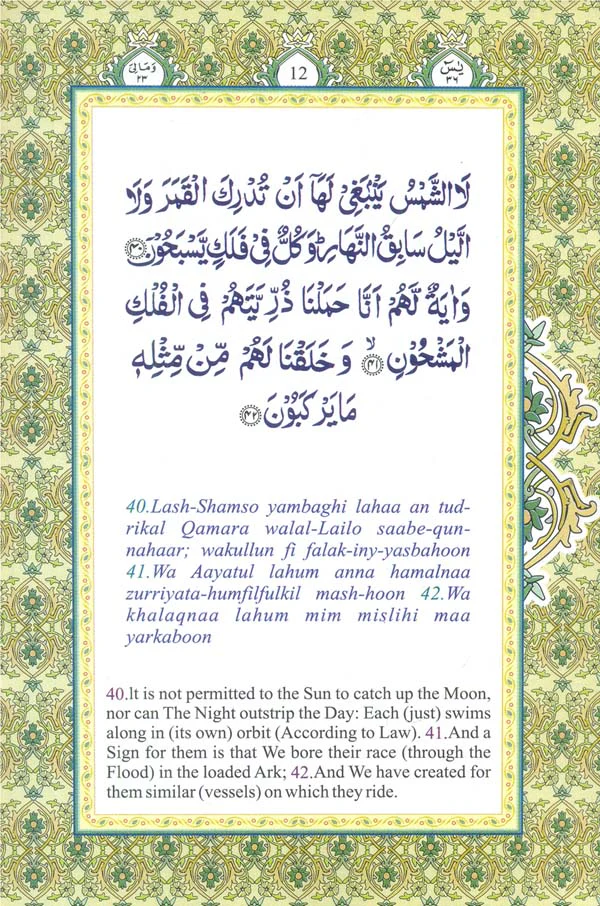 وَمَالِیَ ٢٣
12
یٰسٓ ٣٦
لَا الشَّمْسُ یَنْۢبَغِیْ لَهَاۤ اَنْ تُدْرِكَ الْقَمَرَ وَلَا
الَّیْلُ سَابِقُ النَّهَارِؕ وَكُلٌّ فِیْ فَلَكٍ یَّسْبَحُوْنَ ﴿۴۰﴾
وَاٰیَةٌ لَّهُمْ اَنَّا حَمَلْنَا ذُرِّیَّتَهُمْ فِی الْفُلْكِ
الْمَشْحُوْنِ ﴿۴۱﴾ۙ وَخَلَقْنَا لَهُمْ مِّنْ مِّثْلِهٖ
مَا یَرْكَبُوْنَ ﴿۴۲﴾
40.Lash-Shamso yambaghi lahaa an tud-
rikal Qamara walal-Lailo saabe-qun-
nahaar; wakullun fi falak-iny-yasbahoon
41.Wa Aayatul lahum anna hamalnaa
zurriyata-humfilfulkil mash-hoon 42.Wa
khalaqnaa lahum mim mislihi maa
yarkaboon
40.It is not permitted to the Sun to catch up the Moon,
nor can The Night outstrip the Day: Each (just) swims
along in (its own) orbit (According to Law). 41.And a
Sign for them is that We bore their race (through the
Flood) in the loaded Ark; 42.And We have created for
them similar (vessels) on which they ride.